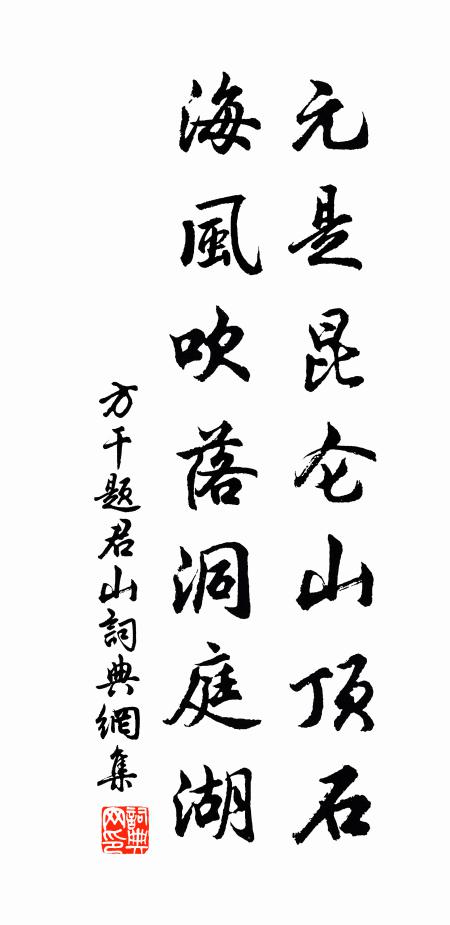 元是昆仑山顶石
海風吹落洞庭湖
方干题君山詞典網集
詞典网印